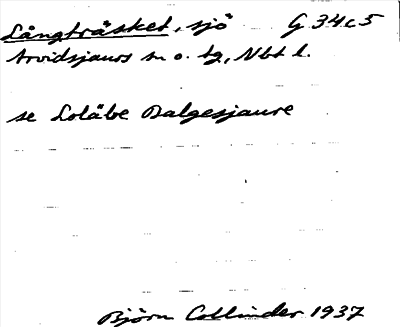 Långträsket, sjö G 34c5
Arvidsjaurs sn o. tg, Nbt l.
se Lolábe Dalgesjaure
Björn Collinder 1937